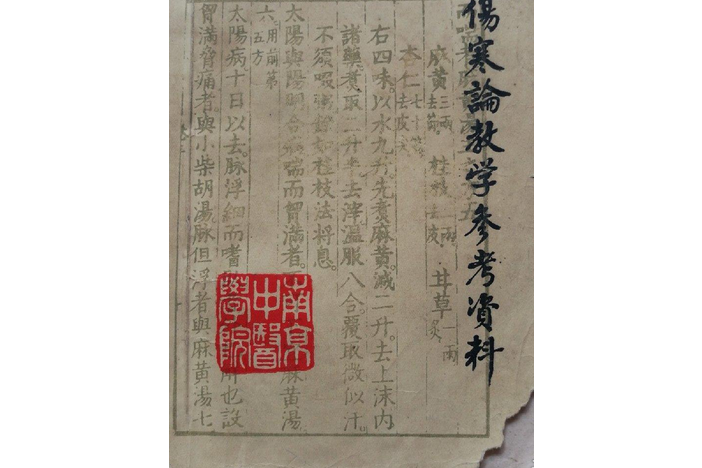 傷寒論教学参考資料
麻黄 三兩去節。 桂枝 二兩去皮。 甘草 一兩炙
杏仁 七十箇去皮
右四味。以水九升。先煮麻黄。減二升。去上沫内
諸藥煮取二升半去滓溫服八合。覆取微似汗。
不須啜粥餘如桂枝法将息。
太陽與陽明合病喘而胷滿者。麻黄湯
六。用前第五方
太陽病十日以去。脉浮細而嗜也設
胷滿脅痛者與小柴胡湯脉但浮者與麻黄湯七
南京
中醫
學院